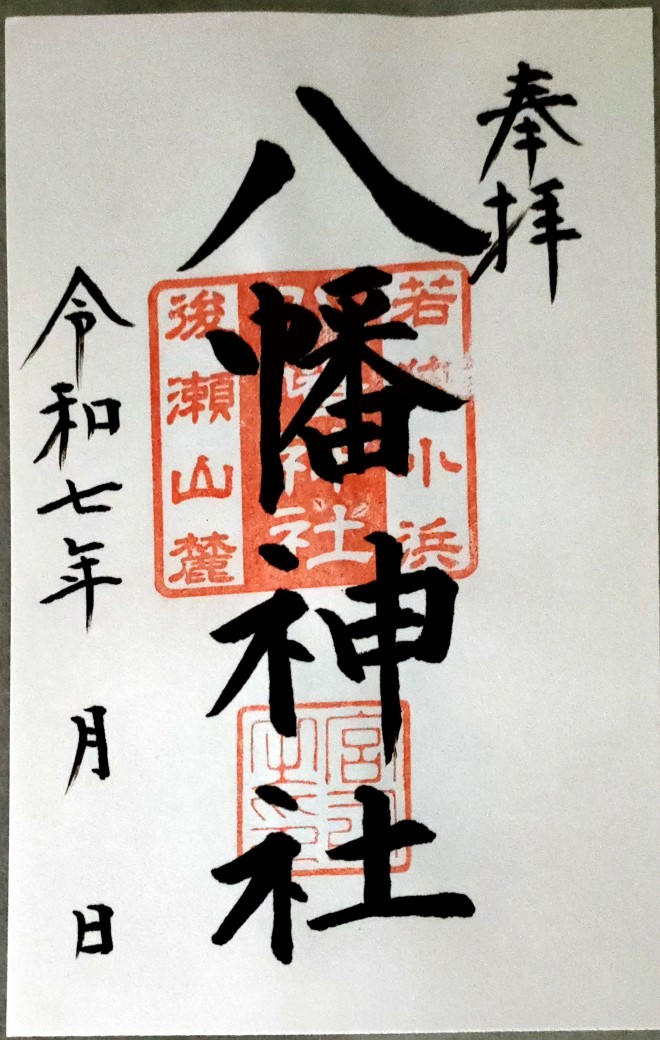 奉拝
八幡神社
令和七年 月 日
若狭小浜
八幡神社
後瀬山麓